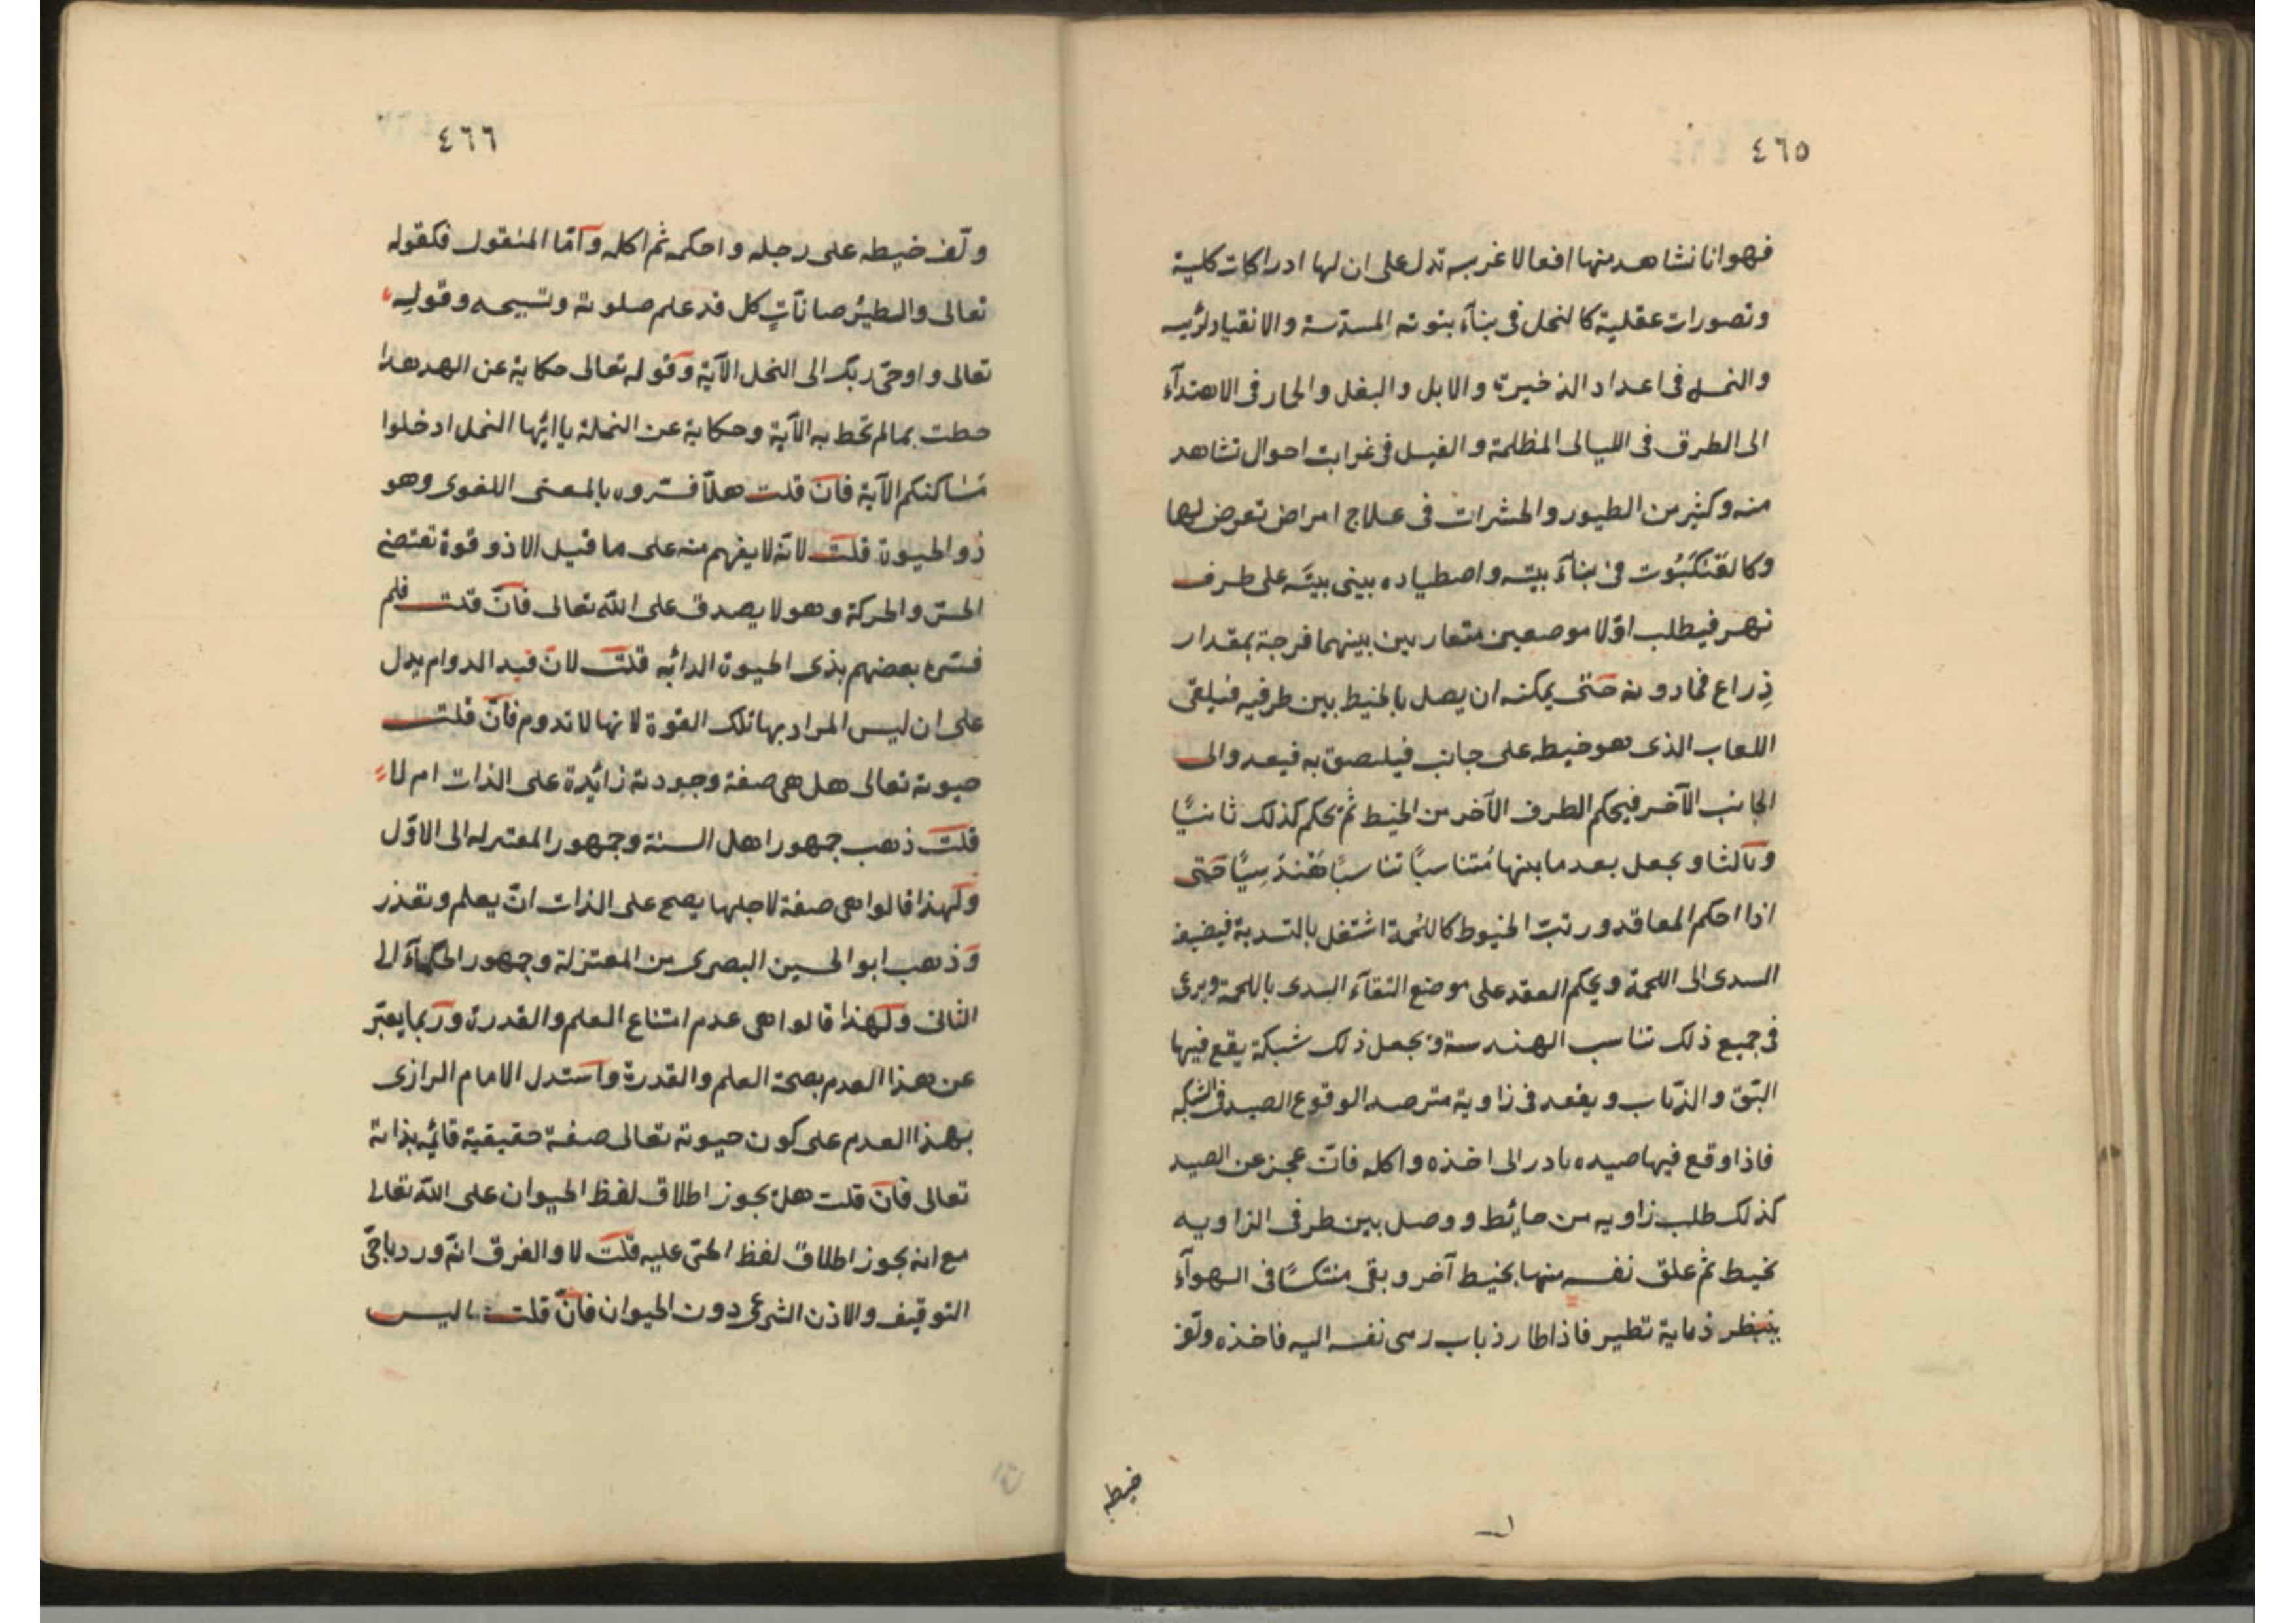 ٤٦٥
فهو انا نشاهد منها افعالا غريبه تدل على ان لها ادراكات كلية
وتصورات عقلية كالنحل فى بنآء بنوته المسدسة والانقياد لرئيسه
والنمل فى اعداد الذخيرة والابل والبغل والحمار فى الاهتدآء
الى الطرق فى الليالى المظلمة والفيل فى غرايت احوال تشاهد
منه وكثير من الطيور والحشرات فى علاج امراض تعرض لها
وكالعَنْكَبُوت فى بنآء بيته واصطياده يبنى بيتَه على طرف
نهر فيطلب اوّلا موضعين متقاربين بينهما فرجة بمقدار
ذِراع فمادونه حَتى يمكنه ان يصل بالخيط بين طرفيه فيلقى
اللعاب الذى هو خيطه على جانب فيلصق به فيعدو الى
الجانب الآخر فيحكم الطرف الآخر من الخيط ثمّ يحكم كذلك ثانيًا
وثالثا ويجعل بعد ما بينها مُتناسبًا تناسبًا هَنْدَسِيًّا حَتى
اذا احكم المعاقد ورتبّ الخيوط كاللحمة اشتغل بالتسدية فيضيف
السدى الى اللحمة ويحكم العقد على موضع التقآء السدى باللحمة ويرعى
فى جميع ذلك تناسب الهندسة ويجعل ذلك شبكة يقع فيها
البّق والذبّاب ويقعد فى زاوية مترصدا لوقوع الصيد فى الشبكه
فاذا وقع فيها صيده بادر الى اخذه واكله فان عجز عن الصيد
كذلك طلب زاويه من حائط ووصل بين طرفى الزاويه
بخيط ثم علق نفسه منها بخيط آخر وبقى منتكسًا فى الهوآء
ينتظر ذبابة تطير فاذا طار ذباب رمى نفسه اليه فاخذه ولّف
خيطه
٤٦٦
ولّف خيطه على رجله واحكمه ثم اكله وآمّا المنقول فكقوله
تعالى والطيرُ صافآتٍ كل قد علم صلوته وتسبيحه وقوله
تعالى واوحىّ ربّك الى النحل الآية وقوله تعالى حكاية عن الهدهد ا
حطت بمالم تحط به الآية وحكاية عن النملة ياايّها النمل ادخلوا
مَسَاكنكم الآية فان قلت هلاّ فسّروه بالمعنى اللغوى وهو
ذو الحيوة قلت لانّه لا يفهم منه على ما قيل الا ذو قوة تقتضى
الحسّ والحركة وهو لا يصدق على اللّه تعالى فانّ قلت فلم
فسّره بعضهم بذى الحيوة الدائمه قلت لانّ قيد الدوام يدل
على ان ليس المراد بها تلك القوة لانها لا تدوم فانّ قلت
حيوته تعالى هل هى صفة وجودته زائدة على الذات ام لا
قلت ذهب جمهور اهل السنة وجمهور المعتزله الى الاوّل
ولهذا قالوا هى صفة لاجلها يصح على الذات انّ يعلم وتقدر
وذهب ابو الحسين البصرى من المعتزلة وجمهور الحكمآء الى
الثانى ولهذا قالوا هى عدم امتناع العلم والقدرة وربما يعبّر
عن هذا العدم بصحة العلم والقدرة واستدل الامام الرازى
بهذا العدم على كون حيوته تعالى صفة حقيقية قائمه بذاته
تعالى فان قلت هل يجوز اطلاق لفظ الحيوان على اللّه تعالى
مع انه يجوز اطلاق لفظ الحىّ عليه قلت لا والفرق انّه ورد باحىّ
التوقيف والاذن الشرعى دون الحيوان فانّ قلت اليس